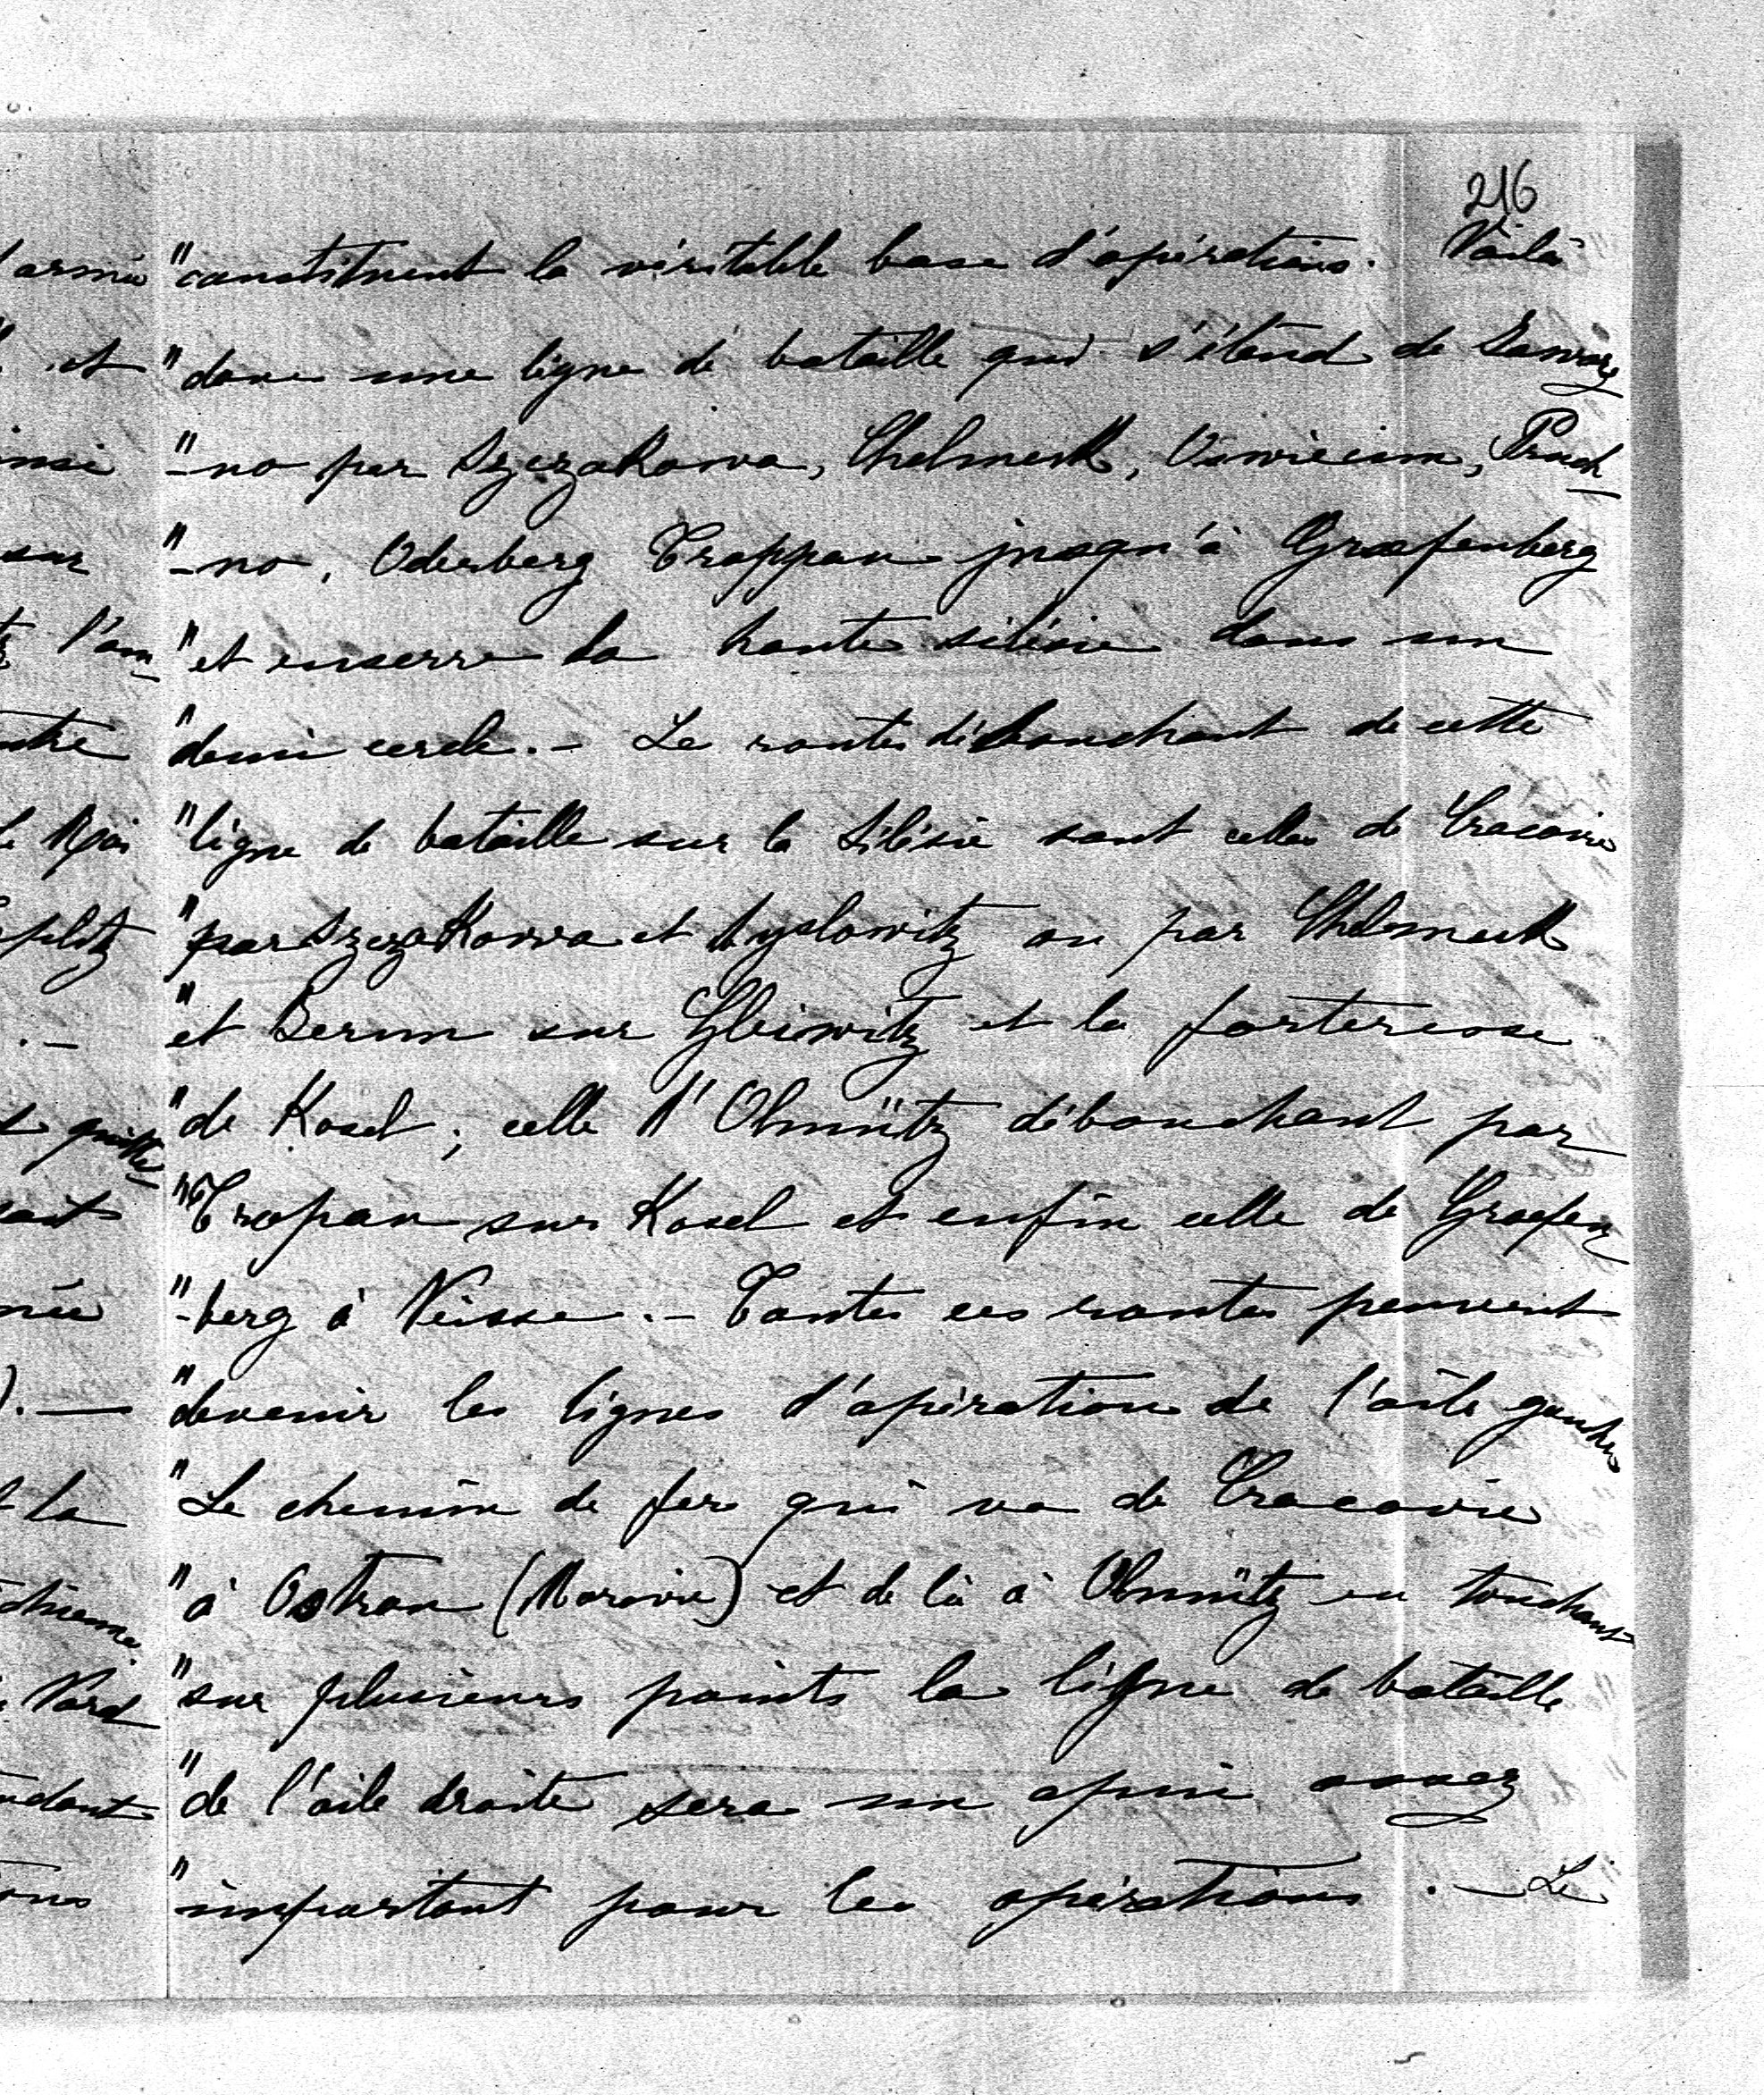 216
"constituent la véritable base d'opérations. Voilà
"donc une ligne de bataille qui s'étend de Jaworz
"-no par Szczakowa, Chelmeck, Oswiecim, Pruch
"-no, Oderberg Troppau jusqu'à Graefenberg
"et enserre la haute silésie dans un
"demi cercle.- Le routes débouchant de cette
"ligne de bataille sur la Silésie sont celles de Cracovie
"par Szczakowa et Myslowitz ou par Chelmeck
"et Berun sur Gleiwitz et la forteresse
"de Kosel; celle d'Olmütz débouchant par
"Tropau sur Kosel et enfin celle de Graefen
"-berg à Neisse.- Toutes ces routes peuvent
"devenir les lignes d'opération de l'aile gauche
"Le chemin de fer qui va de Cracovie
"à Ostrau (Moravie) et de là à Olmütz en touchant
"sur plusieurs points la ligne de bataille
"de l'aile droite sera un apui assez
"important pour les opérations.- Le
armée
et
sur
l'ar
ntre
.-
quitte
).-
la
Nord